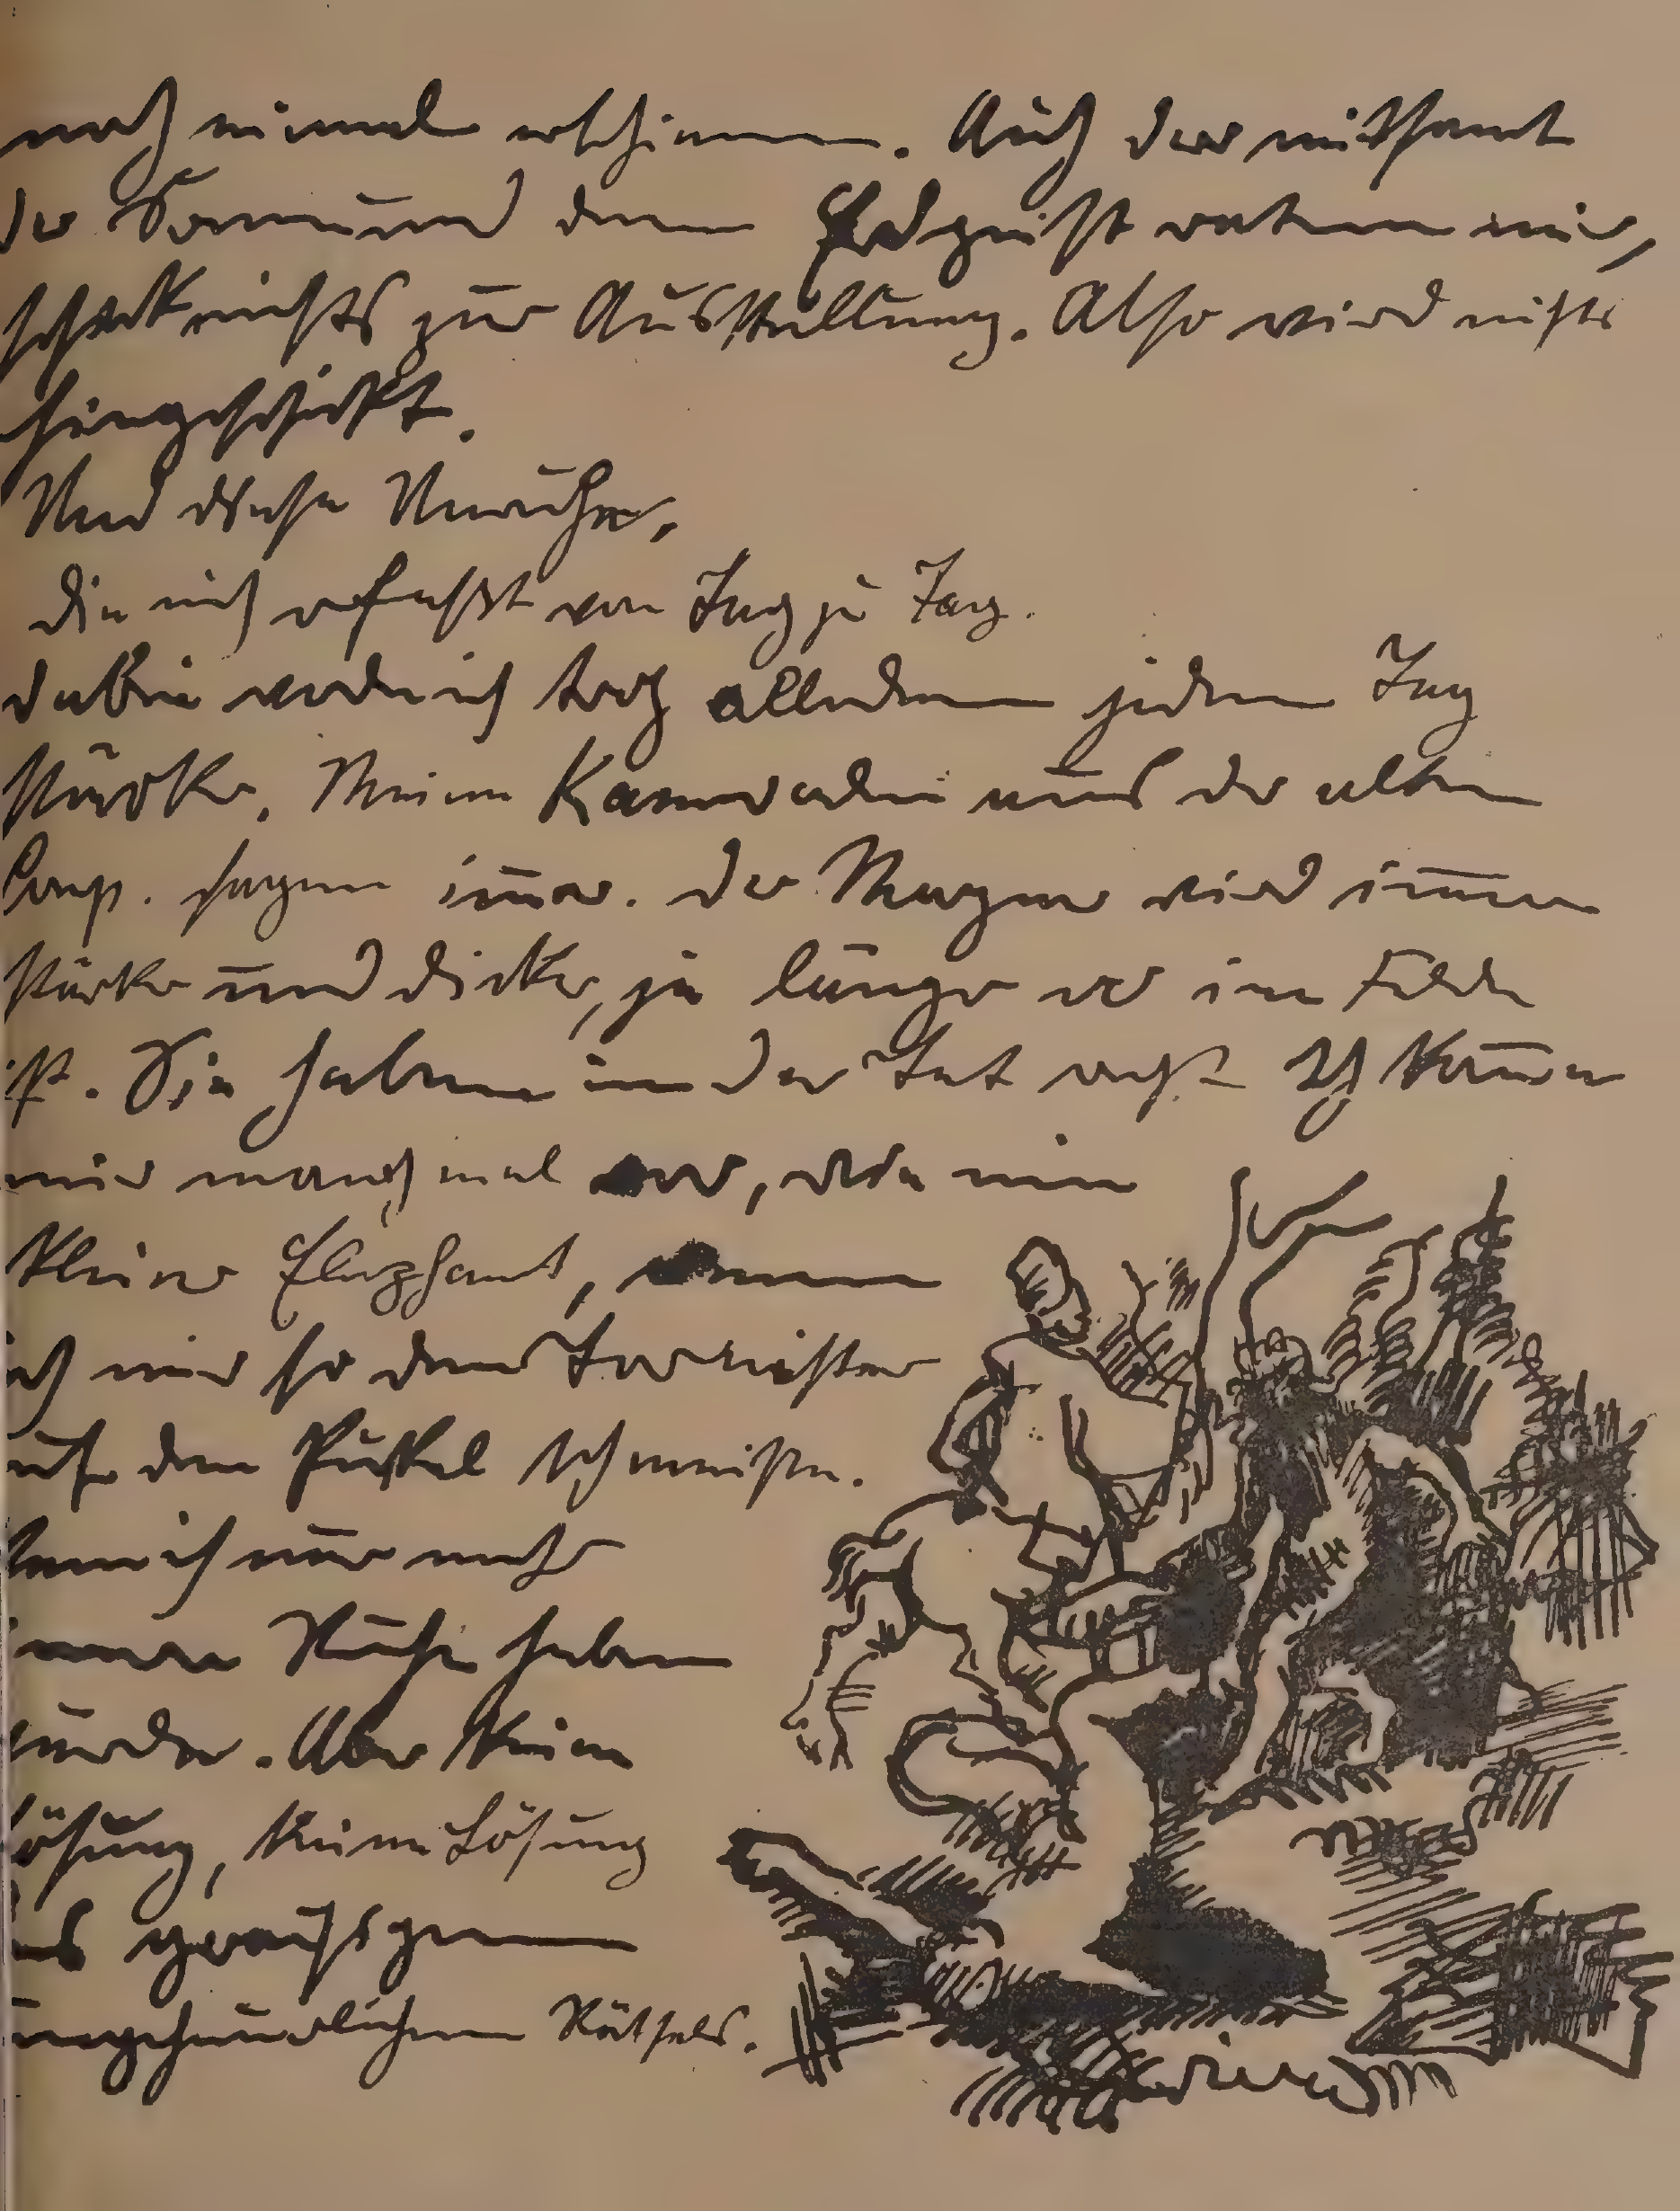 noch einmal erschienen. Auch der mitsamt
der Vormund dem Erdgeist raten mir,
schick nichts zur Ausstellung. Also wird nichts
hingeschickt.
Und diese Unruhe,
die mich erfasst von Tag zu Tag.
dabei werde ich trotz alledem jeden Tag
stärker. Meine Kameraden aus der alten
Comp. sagen im̄er. der Magen wird im̄er
stärker und dicker, je länger er im Felde
ist. Sie haben in der Tat recht Ich kom̄e
mir manchmal vor, wie ein
kleiner Elephant, wenn
ich mir so den Tornister
auf den Puckel schmeisse.
Wenn ich nur mehr
innere Ruhe haben
würde. Aber keine
Lösung, keine Lösung
des grausigen
ungeheuerlichen Rätsels.